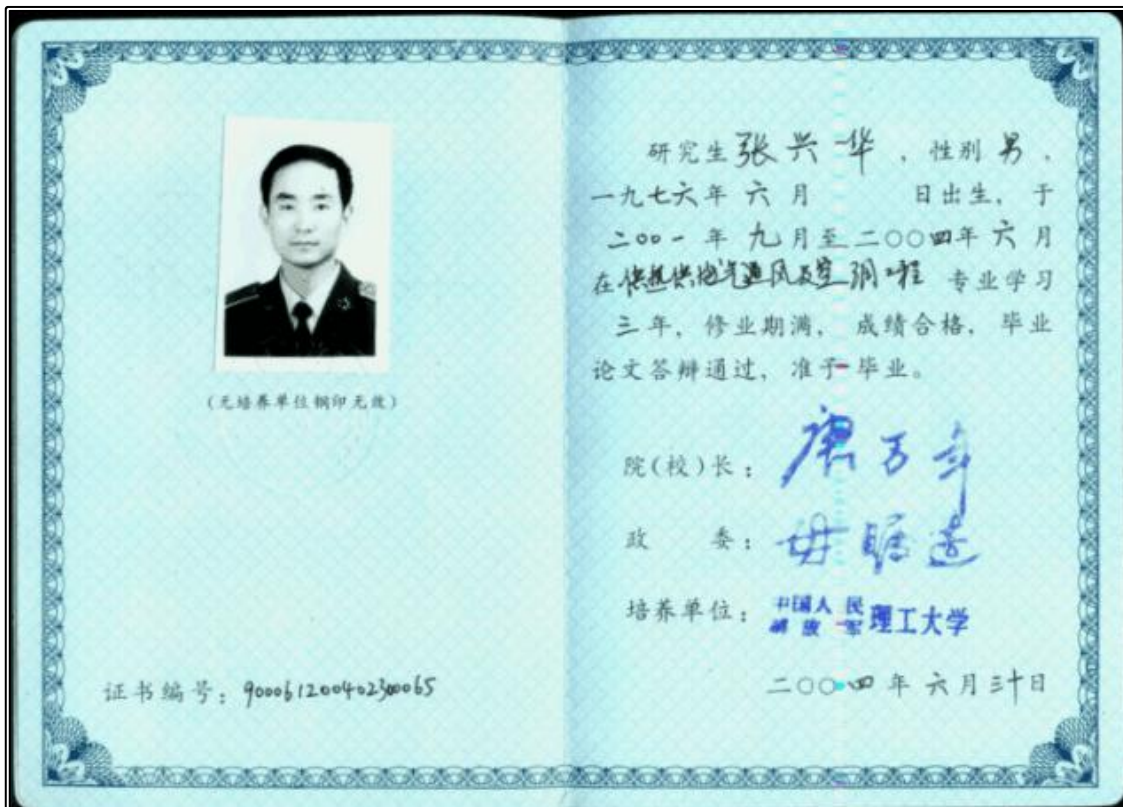 (无培养单位钢印无效)
证书编号：900061200402300065
研究生张兴华，性别男，
一九七六年六月 日出生，于
二○○一年九月至二○○四年六月
在供热供燃气通风及空调工程 专业学习
三年，修业期满，成绩合格，毕业
论文答辩通过，准予毕业。
院(校)长：
政 委：
培养单位：中国人民解放军理工大学
二○○四年六月三十日